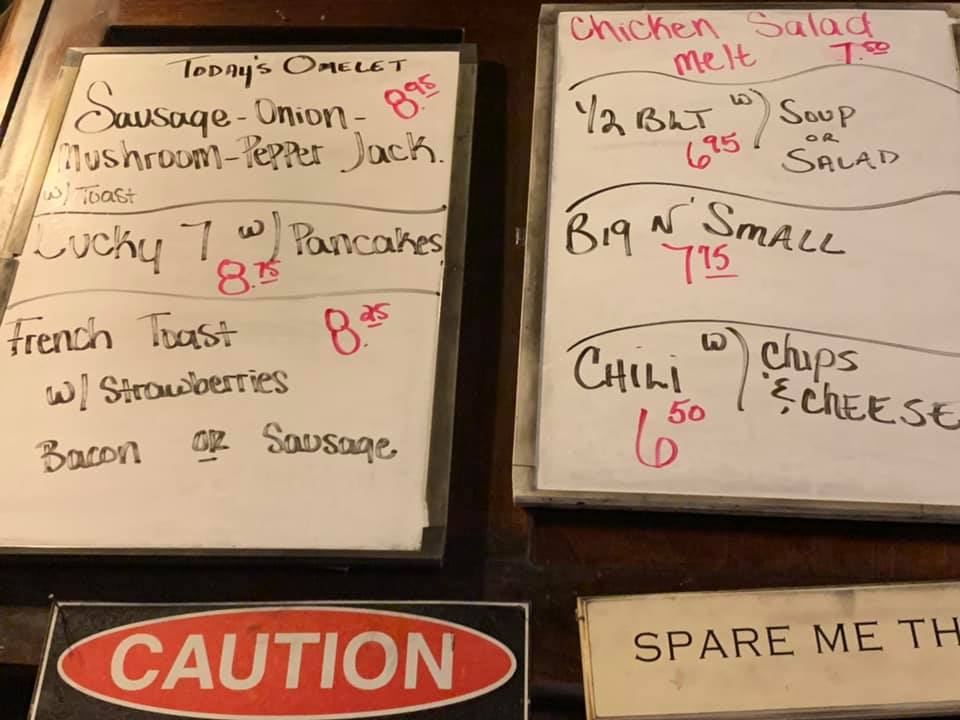 TODAY'S OMELET
Sausage - Onion - 8.95
Mushroom - Pepper Jack.
w/ Toast
Lucky 7 w/ Pancakes
8.75
French Toast 8.25
w/ Strawberries
Bacon OR Sausage
Chicken Salad
melt 7.50
1/2 BLT w/ SOUP
6.95 OR
SALAD
Big N' SMALL
7.75
CHILI w/ Chips
& CHEESE
6.50
CAUTION
SPARE ME TH